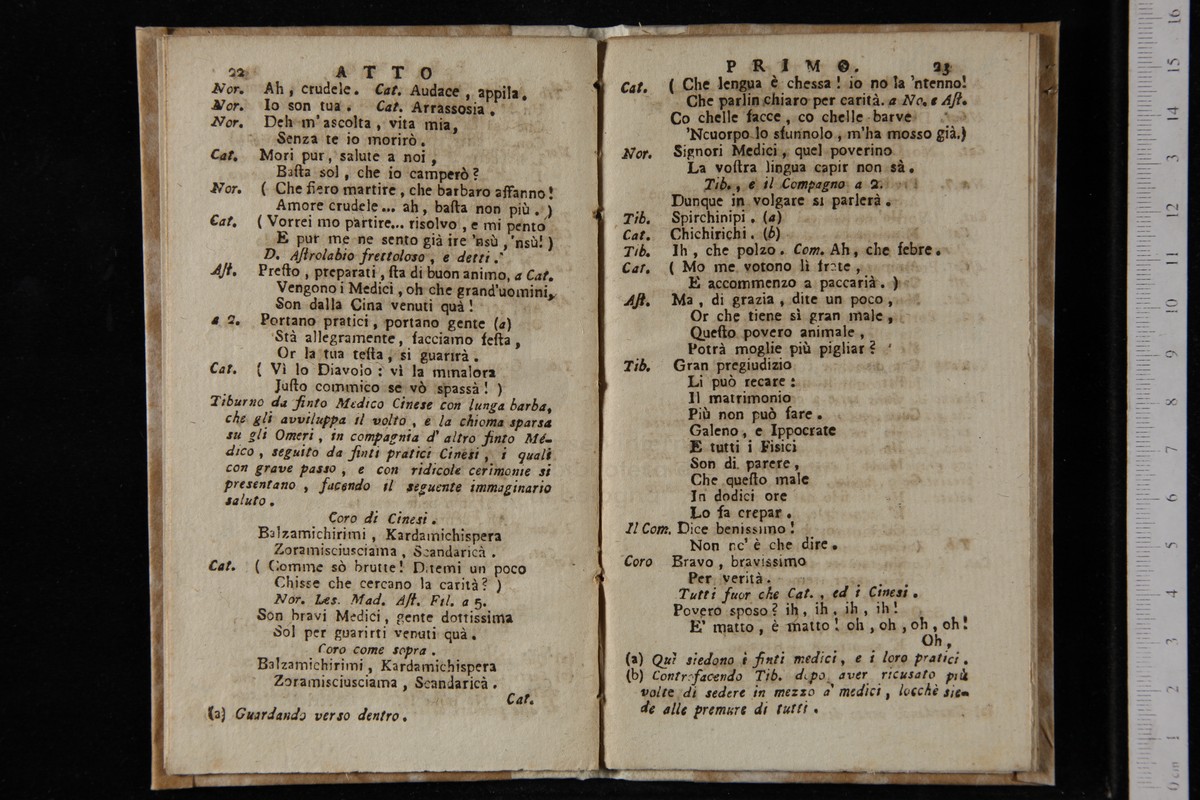 22 ATTO
Nor. Ah, crudele. Cat. Audace, appila.
Nor. Io son tua. Cat. Arrassosia.
Nor. Deh m'ascolta, vita mia,
Senza te io morirò.
Cat. Mori pur, salute a noi,
Baſta sol, che io camperò?
Nor. ( Che fiero martire, che barbaro affanno!
Amore crudele... ah, baſta non più. )
Cat. ( Vorrei mo partire... risolvo, e mi pento
E pur me ne sento già ire 'nsù, 'nsù! )
D. Aſtrolabio frettoloso, e detti.
Aſt. Preſto, preparati, ſta di buon animo, a Cat.
Vengono i Medici, oh che grand'uomini,
Son dalla Cina venuti quà!
a 2. Portano pratici, portano gente (a)
Stà allegramente, facciamo feſta,
Or la tua teſta, si guarirà.
Cat. ( Vì lo Diavolo: vì la mmalora
Juſto commico se vò spassà! )
Tiburno da finto Medico Cinese con lunga barba,
che gli avviluppa il volto, e la chioma sparsa
su gli Omeri, in compagnia d' altro finto Mé-
dico, seguito da finti pratici Cinesi, i quali
con grave passo, e con ridicole cerimonie si
presentano, facendo il seguente immaginario
saluto.
Coro di Cinesi.
Balzamichirimi, Kardamichispera
Zoramisciusciama, Scandaricà.
Cat. ( Comme sò brutte! Ditemi un poco
Chisse che cercano la carità? )
Nor. Les. Mad. Aſt. Fil. a 5.
Son bravi Medici, gente dottissima
Sol per guarirti venuti quà.
Coro come sopra.
Balzamichirimi, Kardamichispera
Zoramisciusciama, Scandaricà.
Cat.
(a) Guardando verso dentro.
PRIMO. 23
Cat. ( Che lengua è chessa! io no la 'ntenno!
Che parlin chiaro per carità. a No. e Aſt.
Co chelle facce, co chelle barve
'Ncuorpo lo sfunnolo, m'ha mosso già.)
Nor. Signori Medici, quel poverino
La voſtra lingua capir non sà.
Tib., e il Compagno a 2.
Dunque in volgare si parlerà.
Tib. Spirchinipi. (a)
Cat. Chichirichi. (b)
Tib. Ih, che polzo. Com. Ah, che febre.
Cat. ( Mo me votono lì frate,
E accommenzo a paccarià. )
Aſt. Ma, di grazia, dite un poco,
Or che tiene sì gran male,
Queſto povero animale,
Potrà moglie più pigliar?
Tib. Gran pregiudizio
Li può recare:
Il matrimonio
Più non può fare.
Galeno, e Ippocrate
E tutti i Fisici
Son di parere,
Che queſto male
In dodici ore
Lo fa crepar.
Il Com. Dice benissimo!
Non nc' è che dire.
Coro Bravo, bravissimo
Per verità.
Tutti fuor che Cat., ed i Cinesi.
Povero sposo? ih, ih, ih, ih!
E' matto, è matto! oh, oh, oh, oh!
Oh,
(a) Quì siedono i finti medici, e i loro pratici.
(b) Contrafacendo Tib. dopo aver ricusato più
volte di sedere in mezzo a' medici, locchè sie-
de alle premure di tutti.
16
15
14
13
12
11
10
9
8
7
6
5
4
3
2
1
0 cm